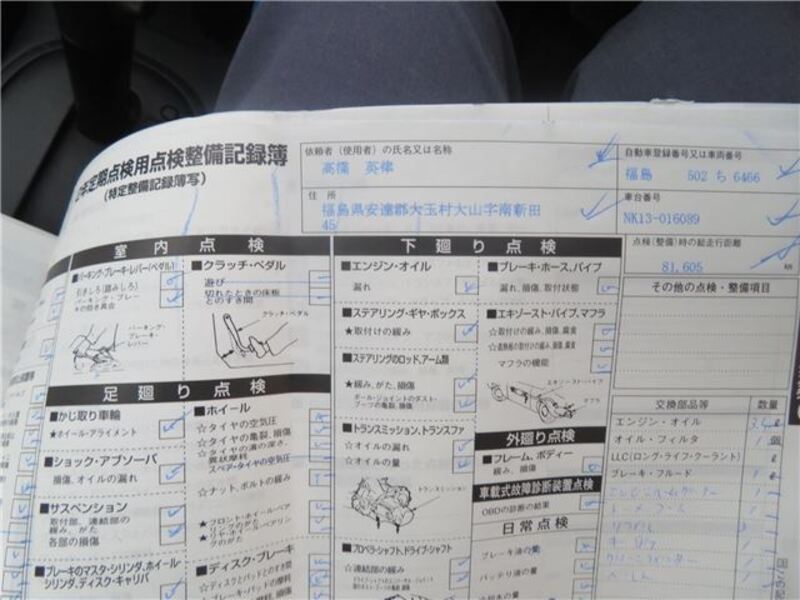 年定期点検用点検整備記録簿
(特定整備記録簿写)
依頼者(使用者)の氏名又は名称
高橋 英樹
住所
福島県安達郡大玉村大山字南新田
45
自動車登録番号又は車両番号
福島 502 ち 6466
車台番号
NK13-016089
点検(整備)時の総走行距離
81,605 km
その他の点検・整備項目
室内点検
■パーキング・ブレーキ・レバー(ペダル)
引きしろ(踏みしろ)
パーキング・ブレーキの効き具合
パーキング・ブレーキ・レバー
■クラッチ・ペダル
遊び
切れたときの床板とのすき間
クラッチ・ペダル
足廻り点検
■かじ取り車輪
★ホイール・アライメント
■ショック・アブソーバ
損傷、オイルの漏れ
■サスペンション
取付部、連結部の緩み、がた
各部の損傷
■ブレーキのマスタ・シリンダ、ホイール・シリンダ、ディスク・キャリパ
■ホイール
☆タイヤの空気圧
☆タイヤの亀裂、損傷
☆タイヤの溝の深さ、異状摩耗
スペア・タイヤの空気圧
☆ナット、ボルトの緩み
★フロント・ホイール・ベアリングのがた
★リヤ・ホイール・ベアリングのがた
■ディスク・ブレーキ
☆ディスクとパッドとのすき間
下廻り点検
■エンジン・オイル
漏れ
■ステアリング・ギヤ・ボックス
★取付けの緩み
■ステアリングのロッド、アーム類
★緩み、がた、損傷
ボール・ジョイントのダスト・ブーツの亀裂、損傷
■トランスミッション、トランスファ
☆オイルの漏れ
☆オイルの量
トランスミッション
■プロペラ・シャフト、ドライブ・シャフト
☆連結部の緩み
■ブレーキ・ホース、パイプ
漏れ、損傷、取付状態
■エキゾースト・パイプ、マフラ
☆取付けの緩み、損傷、腐食
☆遮熱板の取付けの緩み、損傷、腐食
マフラの機能
エキゾースト・パイプ
マフラ
外廻り点検
■フレーム、ボディー
緩み、損傷
車載式故障診断装置点検
OBDの診断の結果
日常点検
ブレーキ液の量
バッテリ液の量
冷却水の量
交換部品等 数量
エンジン・オイル
オイル・フィルタ 1 個
LLC(ロング・ライフ・クーラント)
ブレーキ・フルード